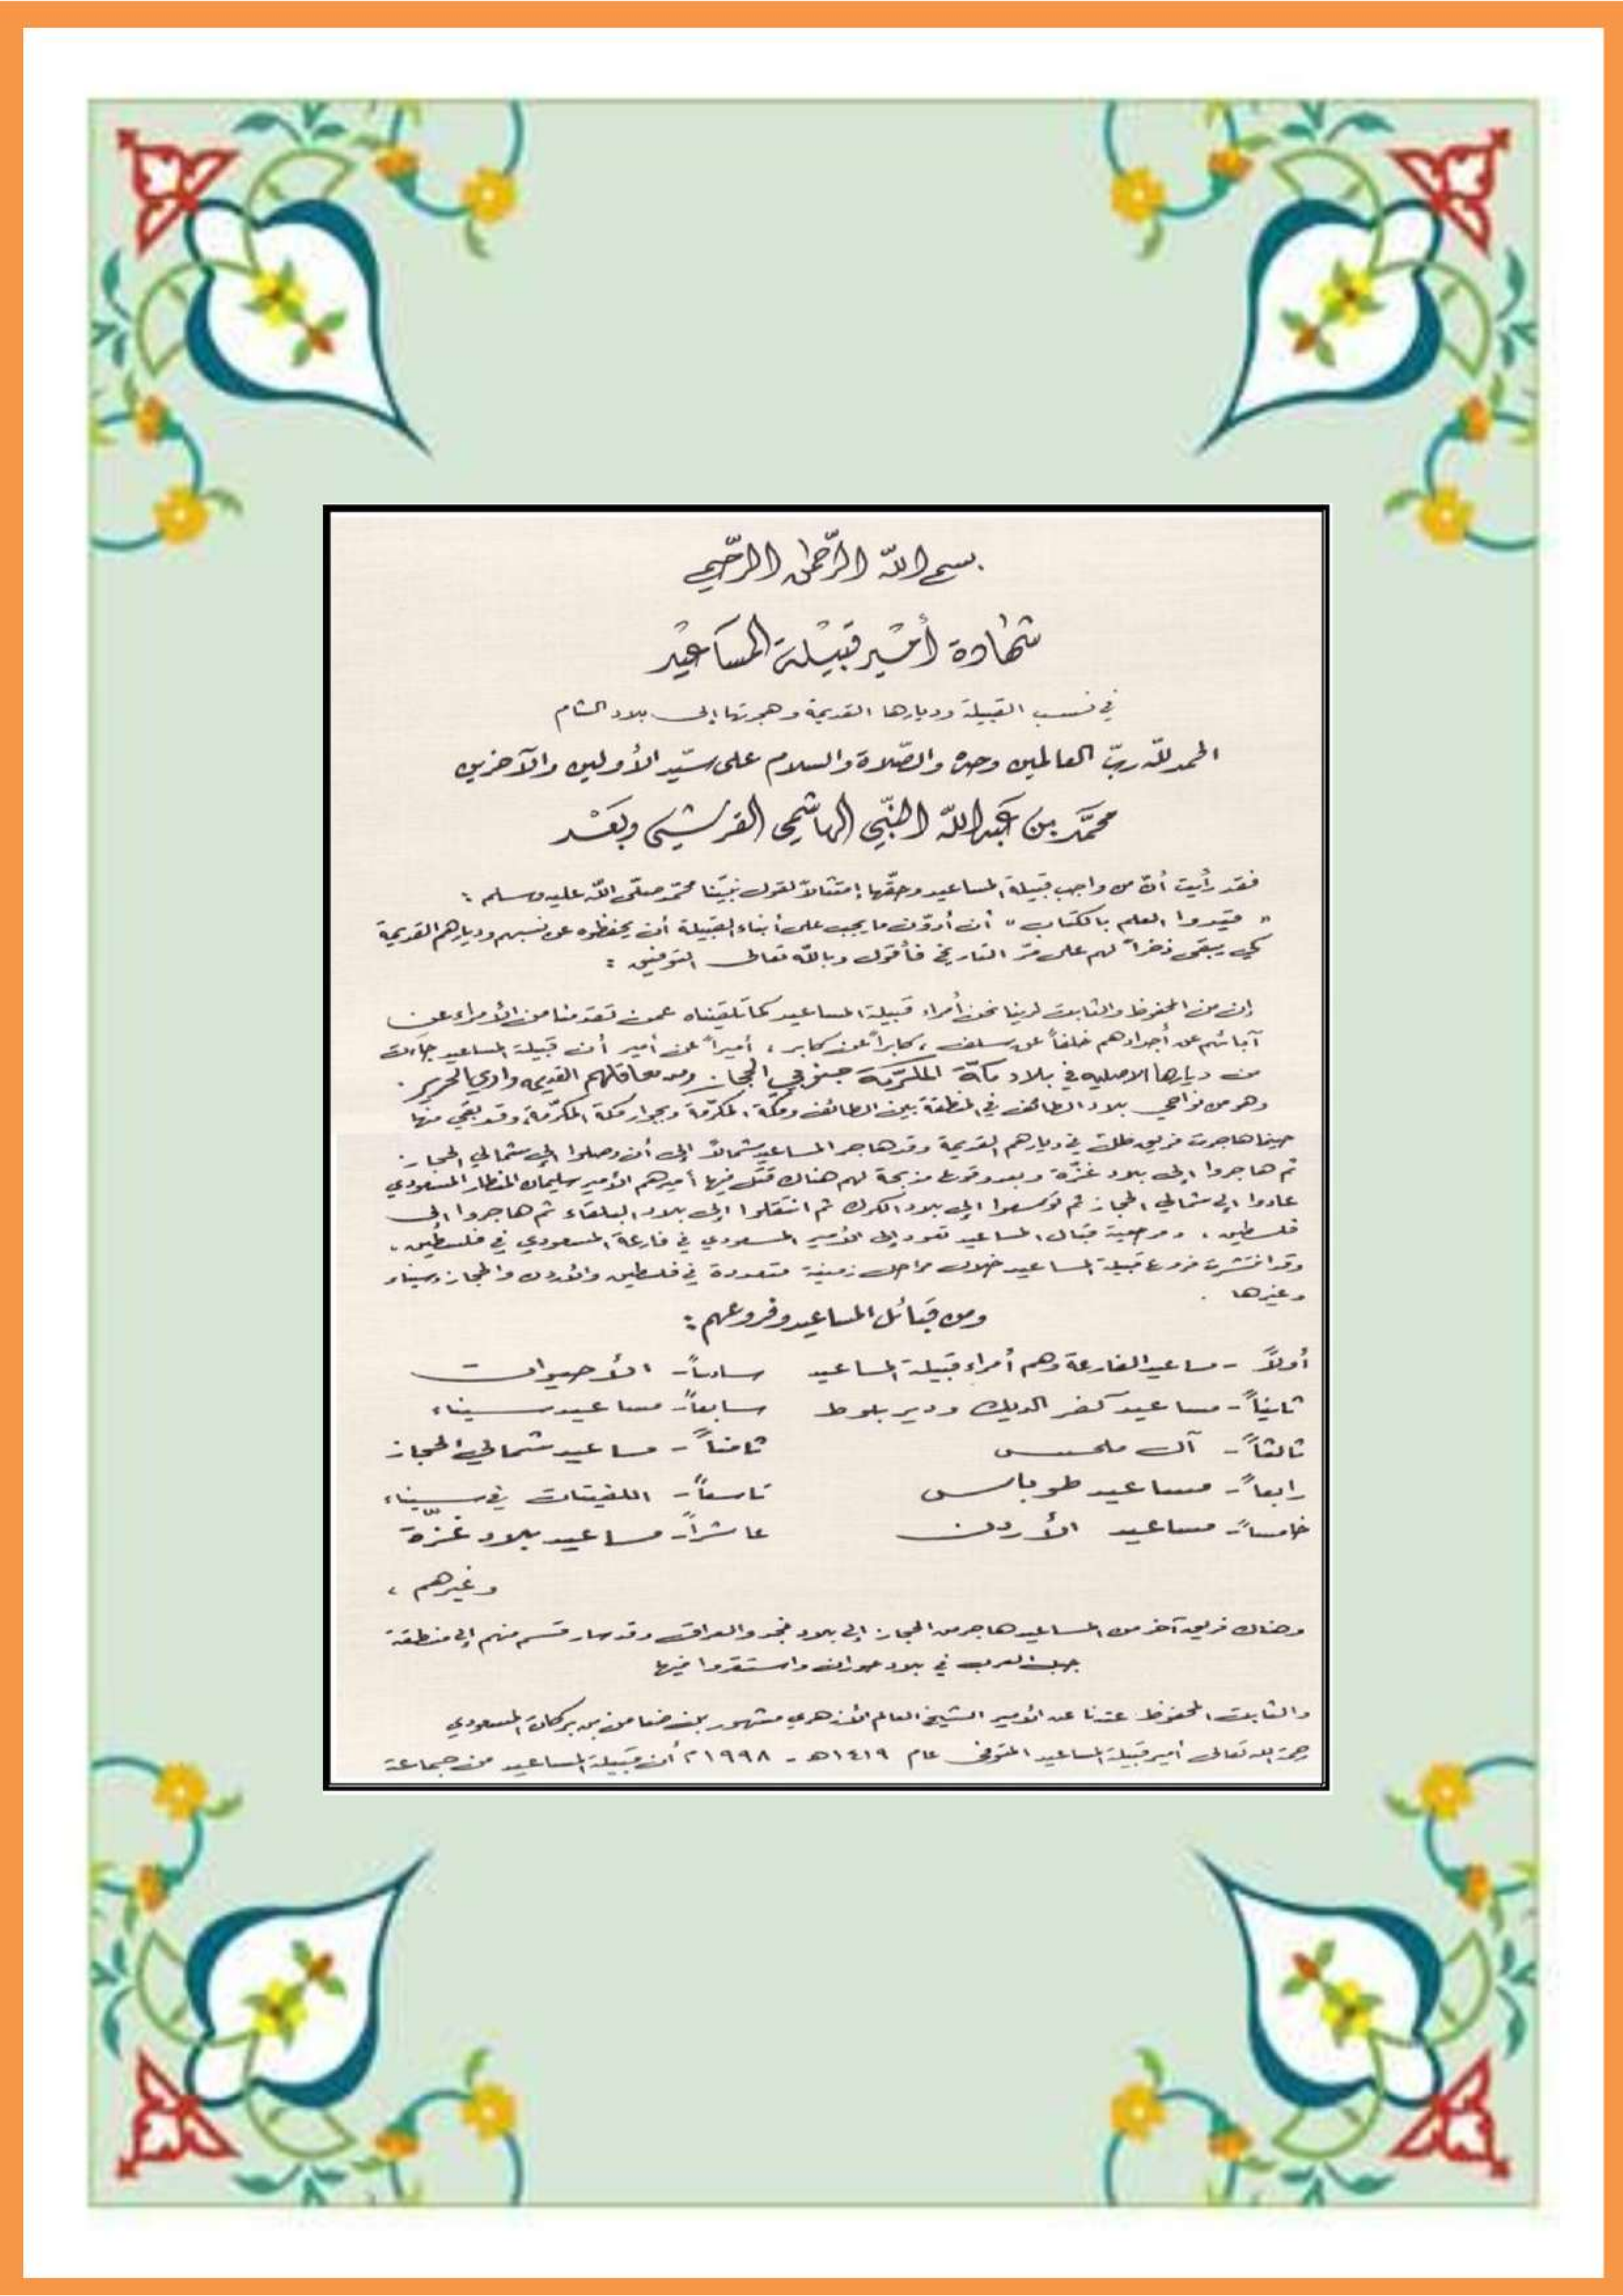 بسم الله الرّحمن الرّحيم
شهادة أمير قبيلة المساعيد
في نسب القبيلة وديارها القديمة وهجرتها إلى بلاد الشام
الحمد للّه ربّ العالمين وحده والصّلاة والسلام على سيّد الأولين والآخرين
محمّد بن عبد اللّه النّبي الهاشمي القرشي وبعد
فقد رأيت أنّ من واجب قبيلة المساعيد وحقّها إمتثالاً لقول نبيّنا محمّد صلّى اللّه عليه وسلم :
" قيدوا العلم بالكتاب " أن أدوّن ما يجب على أبناء القبيلة أن يحفظوه عن نسبهم وديارهم القديمة
كي يبقى ذخراً لهم على مرّ التاريخ فأقول وباللّه تعالى التوفيق :
إن من المحفوظ والثابت لدينا نحن أمراء قبيلة المساعيد كما تلقيناه عمن تقدمنا من الأمراء عن
آبائهم عن أجدادهم خلفاً عن سلف ، كابراً عن كابر ، أميراً عن أمير أن قبيلة المساعيد جاءت
من ديارها الاصليه في بلاد مكّة المكرّمة جنوبي الحجاز ومن معاقلهم القديمه وادي الحرير .
وهو من نواحي بلاد الطائف في المنطقة بين الطائف ومكة المكرّمة وبجوار مكة المكرّمة وقد بقي منها
حينما هاجرت فريق ظلّ في ديارهم القديمة وقد هاجر المساعيد شمالاً إلى أن وصلوا إلى شمالي الحجاز
ثم هاجروا إلى بلاد غزّة وبعد وقوع مذبحة لهم هناك قتل فيها أميرهم الأمير سليمان المنطار المسعودي
عادوا إلى شمالي الحجاز ثم توسعوا إلى بلاد الكرك ثم انتقلوا إلى بلاد البلقاء ثم هاجروا إلى
فلسطين . ومرجعية قبائل المساعيد تعود إلى الأمير المسعودي في فارعة المسعودي في فلسطين .
وقد انتشرت فروع قبيلة المساعيد خلال مراحل زمنية متعددة في فلسطين والأردن والحجاز وسيناء
وغيرها .
ومن قبائل المساعيد وفروعهم :
أولاً - مساعيد الفارعة وهم أمراء قبيلة المساعيد سادساً - الأحيوات
ثانياً - مساعيد كفر الديك ودير بلوط سابعاً - مساعيد سيناء
ثالثاً - آل ملحس ثامناً - مساعيد شمالي الحجاز
رابعاً - مساعيد طوباس تاسعاً - اللفيتات في سيناء
خامساً - مساعيد الأردن عاشراً - مساعيد بلاد غزّة
وغيرهم ،
وهناك فريق آخر من المساعيد هاجر من الحجاز إلى بلاد نجد والعراق وقد سار قسم منهم إلى منطقة
جبل العرب في بلاد حوران واستقروا فيها
والثابت المحفوظ عندنا عن الأمير الشيخ العالم الأزهري مشهور بن ضامن بن بركات المسعودي
رحمه الله تعالى أمير قبيلة المساعيد المتوفى عام ١٤١٩هـ - ١٩٩٨م أن قبيلة المساعيد من جماعة